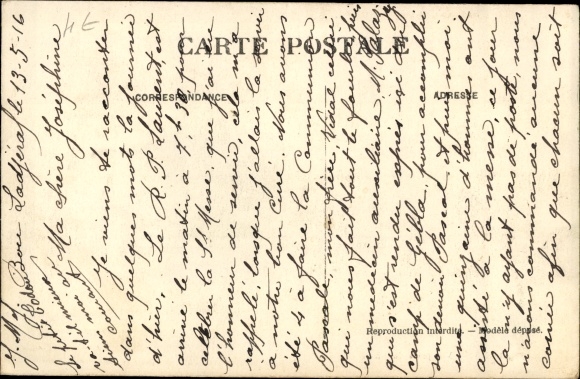 CARTE POSTALE
CORRESPONDANCE
ADRESSE
Reproduction interdite. — Modèle déposé.
4 E
Ladjeraf le 13-5-16
Ma chère Joséphine
Je viens te raconter
dans quelques mots la journée
d'hier. Le R. P. Laurent est
arrivé le matin à 7 h 30 pour
célébrer la Ste Messe, que j'ai eu
l'honneur de servir, cela m'a
rappelé, lorsque j'allais la servir
à notre bon curé. Nous avons
été 4 à faire la Communion
Pascale, mon frère Vidal
qui nous fait tout le fourbi
un médecin auxiliaire M.
qui s'est rendu exprès ici du
camp de pour accomplir
son devoir Pascal, et puis moi
une quinzaine d'hommes ont
assisté à la messe, ce jour
là on n'ayant pas de poste, nous
n'avons commandé aucune
corvée afin que chacun soit